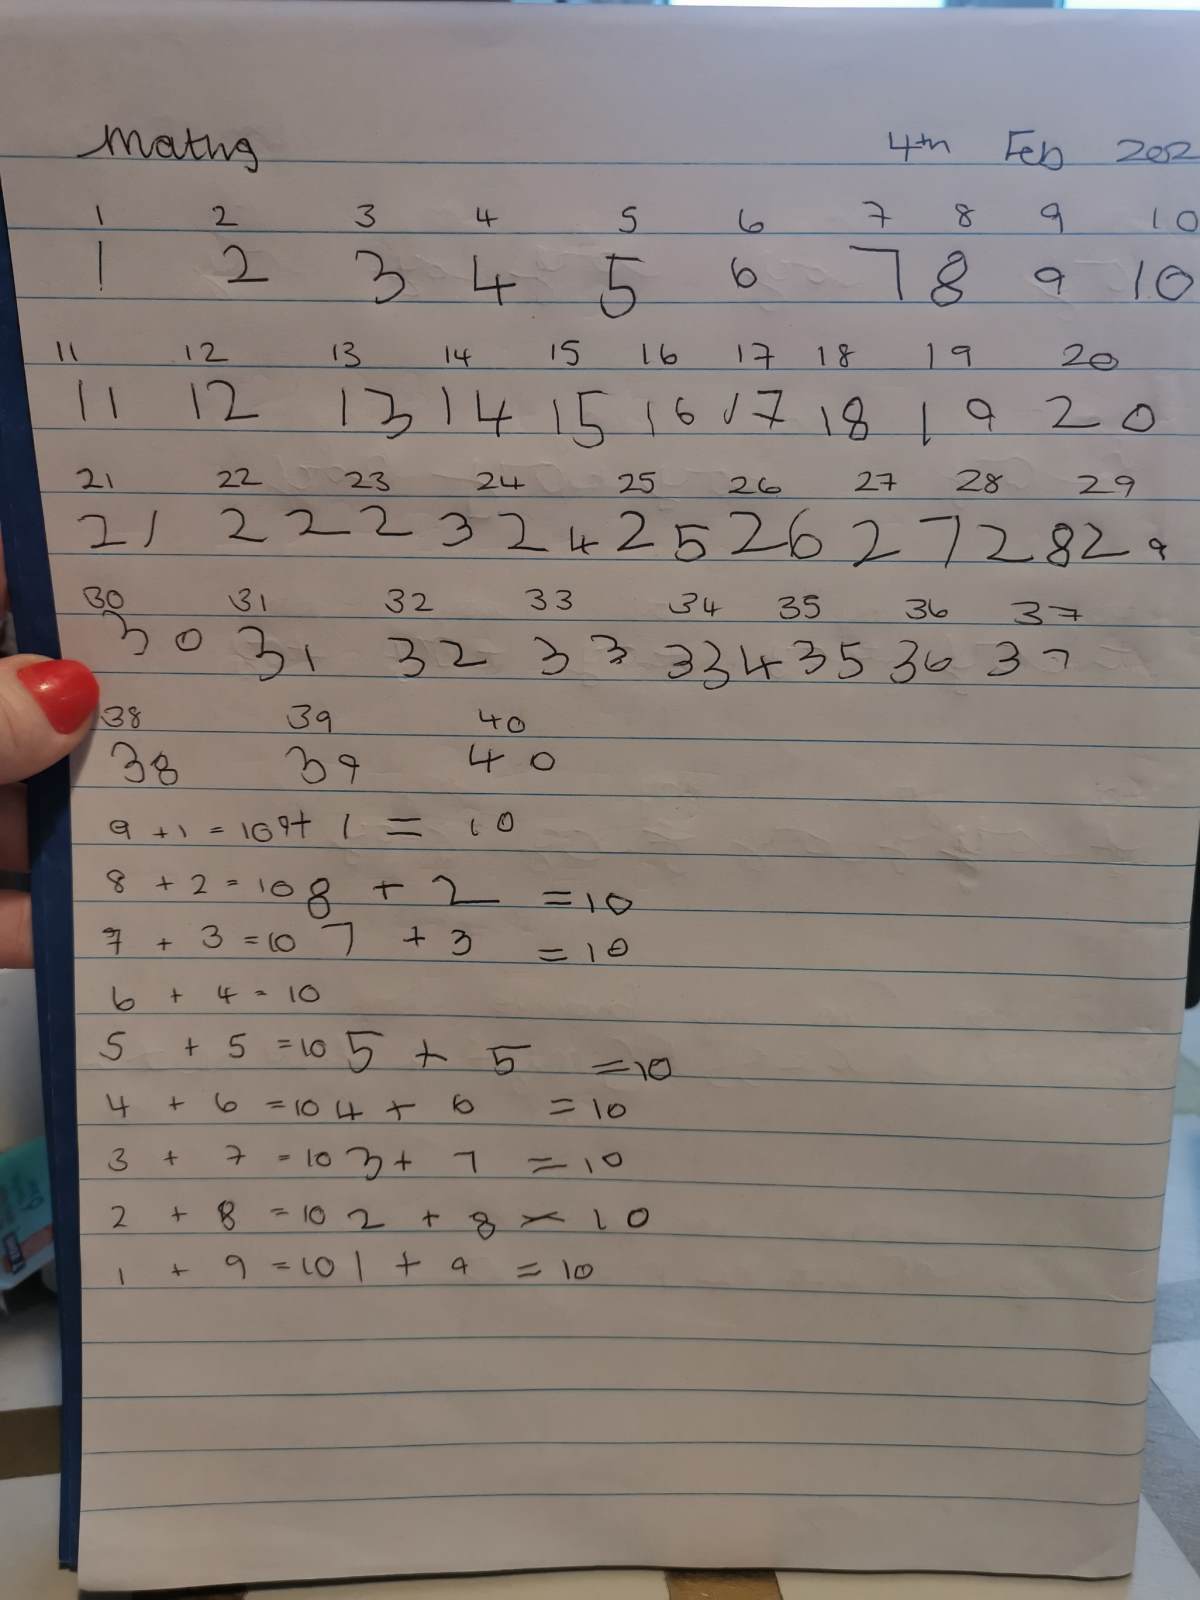 Maths 4th Feb 202
1 2 3 4 5 6 7 8 9 10
1 2 3 4 5 6 7 8 9 10
11 12 13 14 15 16 17 18 19 20
11 12 13 14 15 16 17 18 19 20
21 22 23 24 25 26 27 28 29
21 22 23 24 25 26 27 28 29
30 31 32 33 34 35 36 37
30 31 32 33 334 35 36 37
38 39 40
38 39 40
9 + 1 = 10 9 + 1 = 10
8 + 2 = 10 8 + 2 = 10
7 + 3 = 10 7 + 3 = 10
6 + 4 = 10
5 + 5 = 10 5 + 5 = 10
4 + 6 = 10 4 + 6 = 10
3 + 7 = 10 3 + 7 = 10
2 + 8 = 10 2 + 8 = 10
1 + 9 = 10 1 + 9 = 10